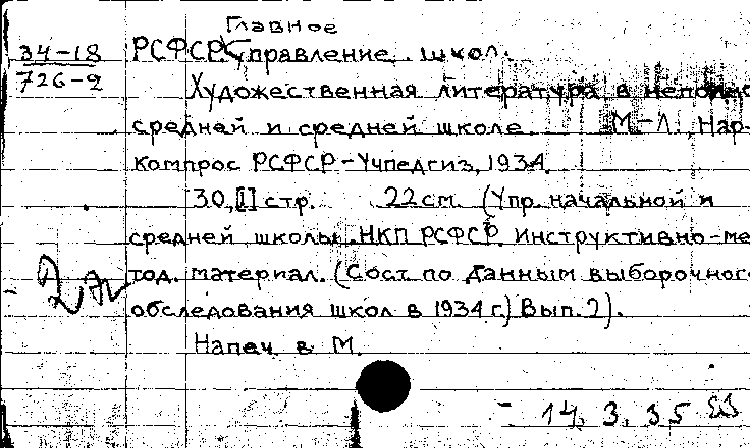 Главное
34-18 РСФСР. Управление школ.
726-2
Художественная литература в неполно
средней и средней школе. М.-Л., Нар-
компрос РСФСР-Учпедгиз, 1934.
30,[1] стр. 22 см. (Упр. начальной и
средней школы НКП РСФСР. Инструктивно-ме
тод. материал. (Сост. по данным выборочног
обследования школ в 1934 г.) Вып. 2).
Напеч. в М.
- 14. 3. 35